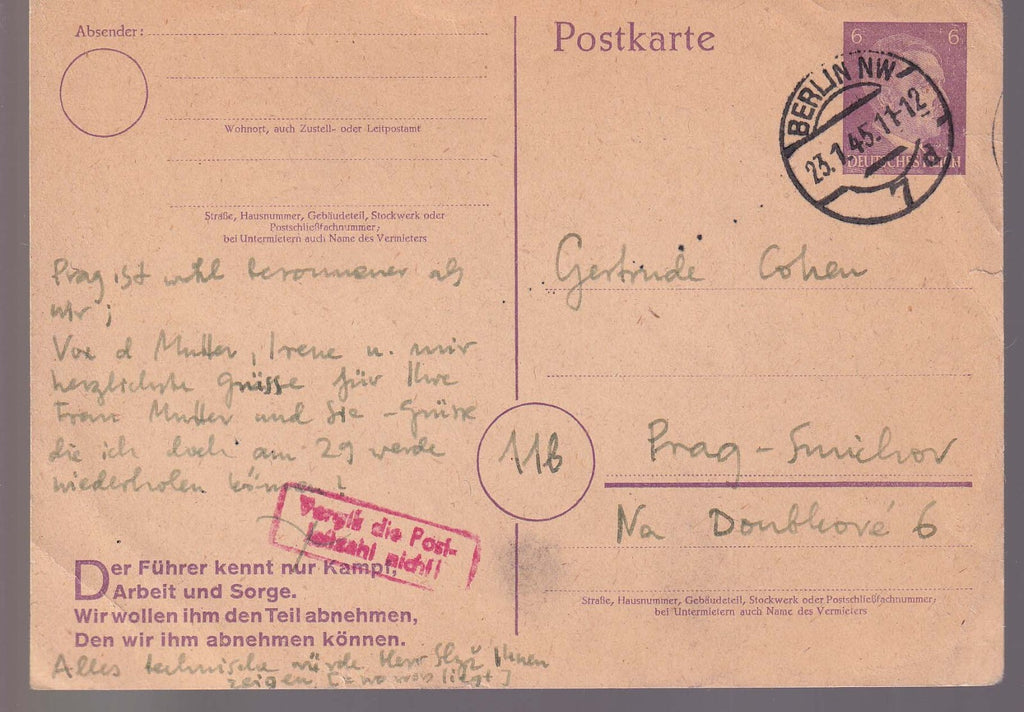 Absender:
Wohnort, auch Zustell- oder Leitpostamt
Straße, Hausnummer, Gebäudeteil, Stockwerk oder
Postschließfachnummer;
bei Untermietern auch Name des Vermieters
Prag ist wohl besonnener als
wir;
Von d Mutter, Irene u. mir
herzlichste Grüsse für Ihre
Frau Mutter und Sie - Grüsse
die ich doch am 29 werde
wiederholen können!
Vergiß die Post-
leitzahl nicht!
Der Führer kennt nur Kampf,
Arbeit und Sorge.
Wir wollen ihm den Teil abnehmen,
Den wir ihm abnehmen können.
Alles technische würde Herr Ihnen
zeigen [wo was liegt]
Postkarte
6 6
DEUTSCHES REICH
BERLIN NW
23.1.45.11-12
7
a
Gertrude Cohen
11b
Prag-Smichov
Na Doubkové 6
Straße, Hausnummer, Gebäudeteil, Stockwerk oder Postschließfachnummer;
bei Untermietern auch Name des Vermieters